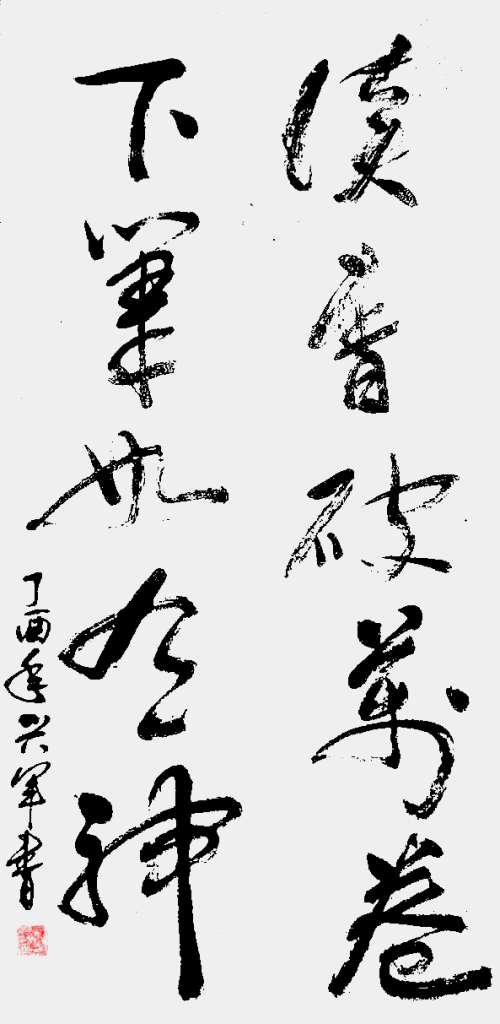 读書破萬卷
下筆如有神
丁酉年兴軍書